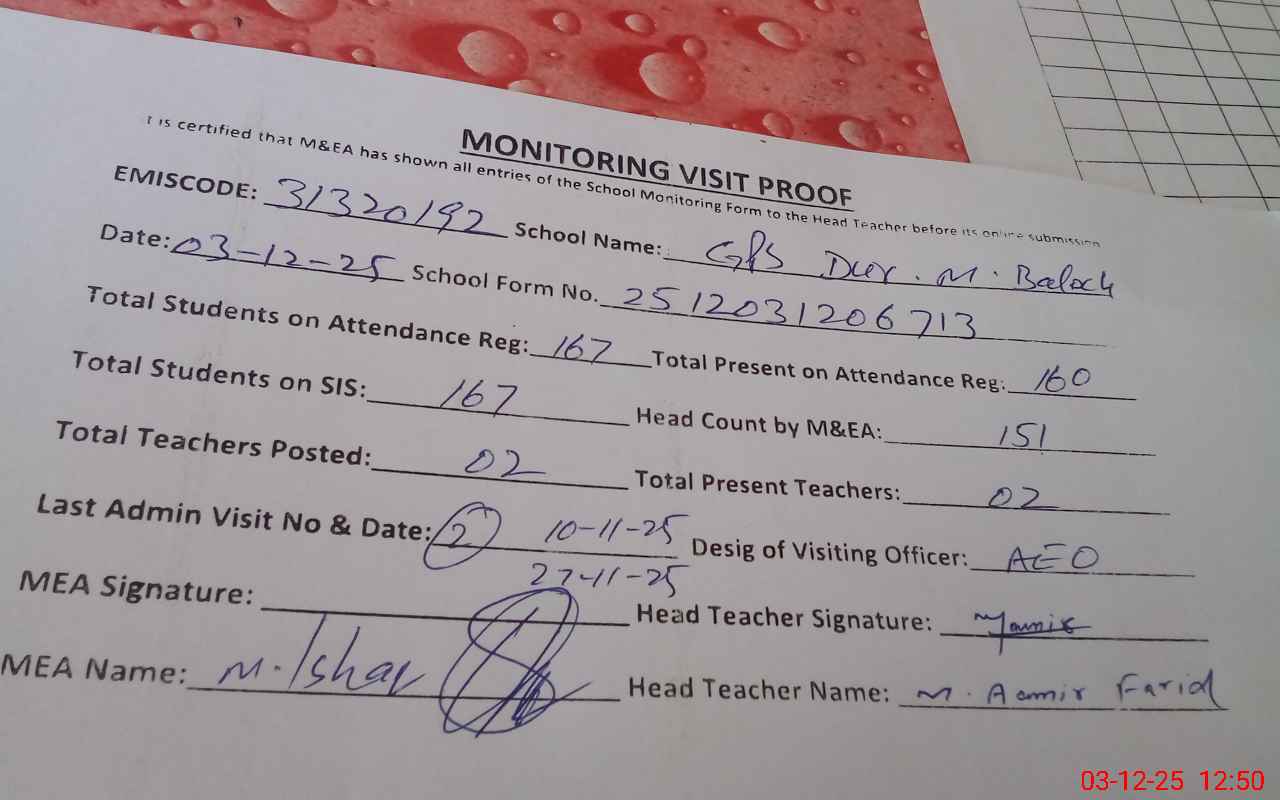 MONITORING VISIT PROOF
t is certified that M&EA has shown all entries of the School Monitoring Form to the Head Teacher before its online submission
EMISCODE: 31320192 School Name: GPS Dur. M. Baloch
Date: 03-12-25 School Form No. 2512031206713
Total Students on Attendance Reg: 167 Total Present on Attendance Reg: 160
Total Students on SIS: 167 Head Count by M&EA: 151
Total Teachers Posted: 02 Total Present Teachers: 02
Last Admin Visit No & Date: 2 10-11-25 Desig of Visiting Officer: AEO
27-11-25
MEA Signature: Head Teacher Signature:
MEA Name: M. Ishaq Head Teacher Name: M. Aamir Farid
03-12-25 12:50